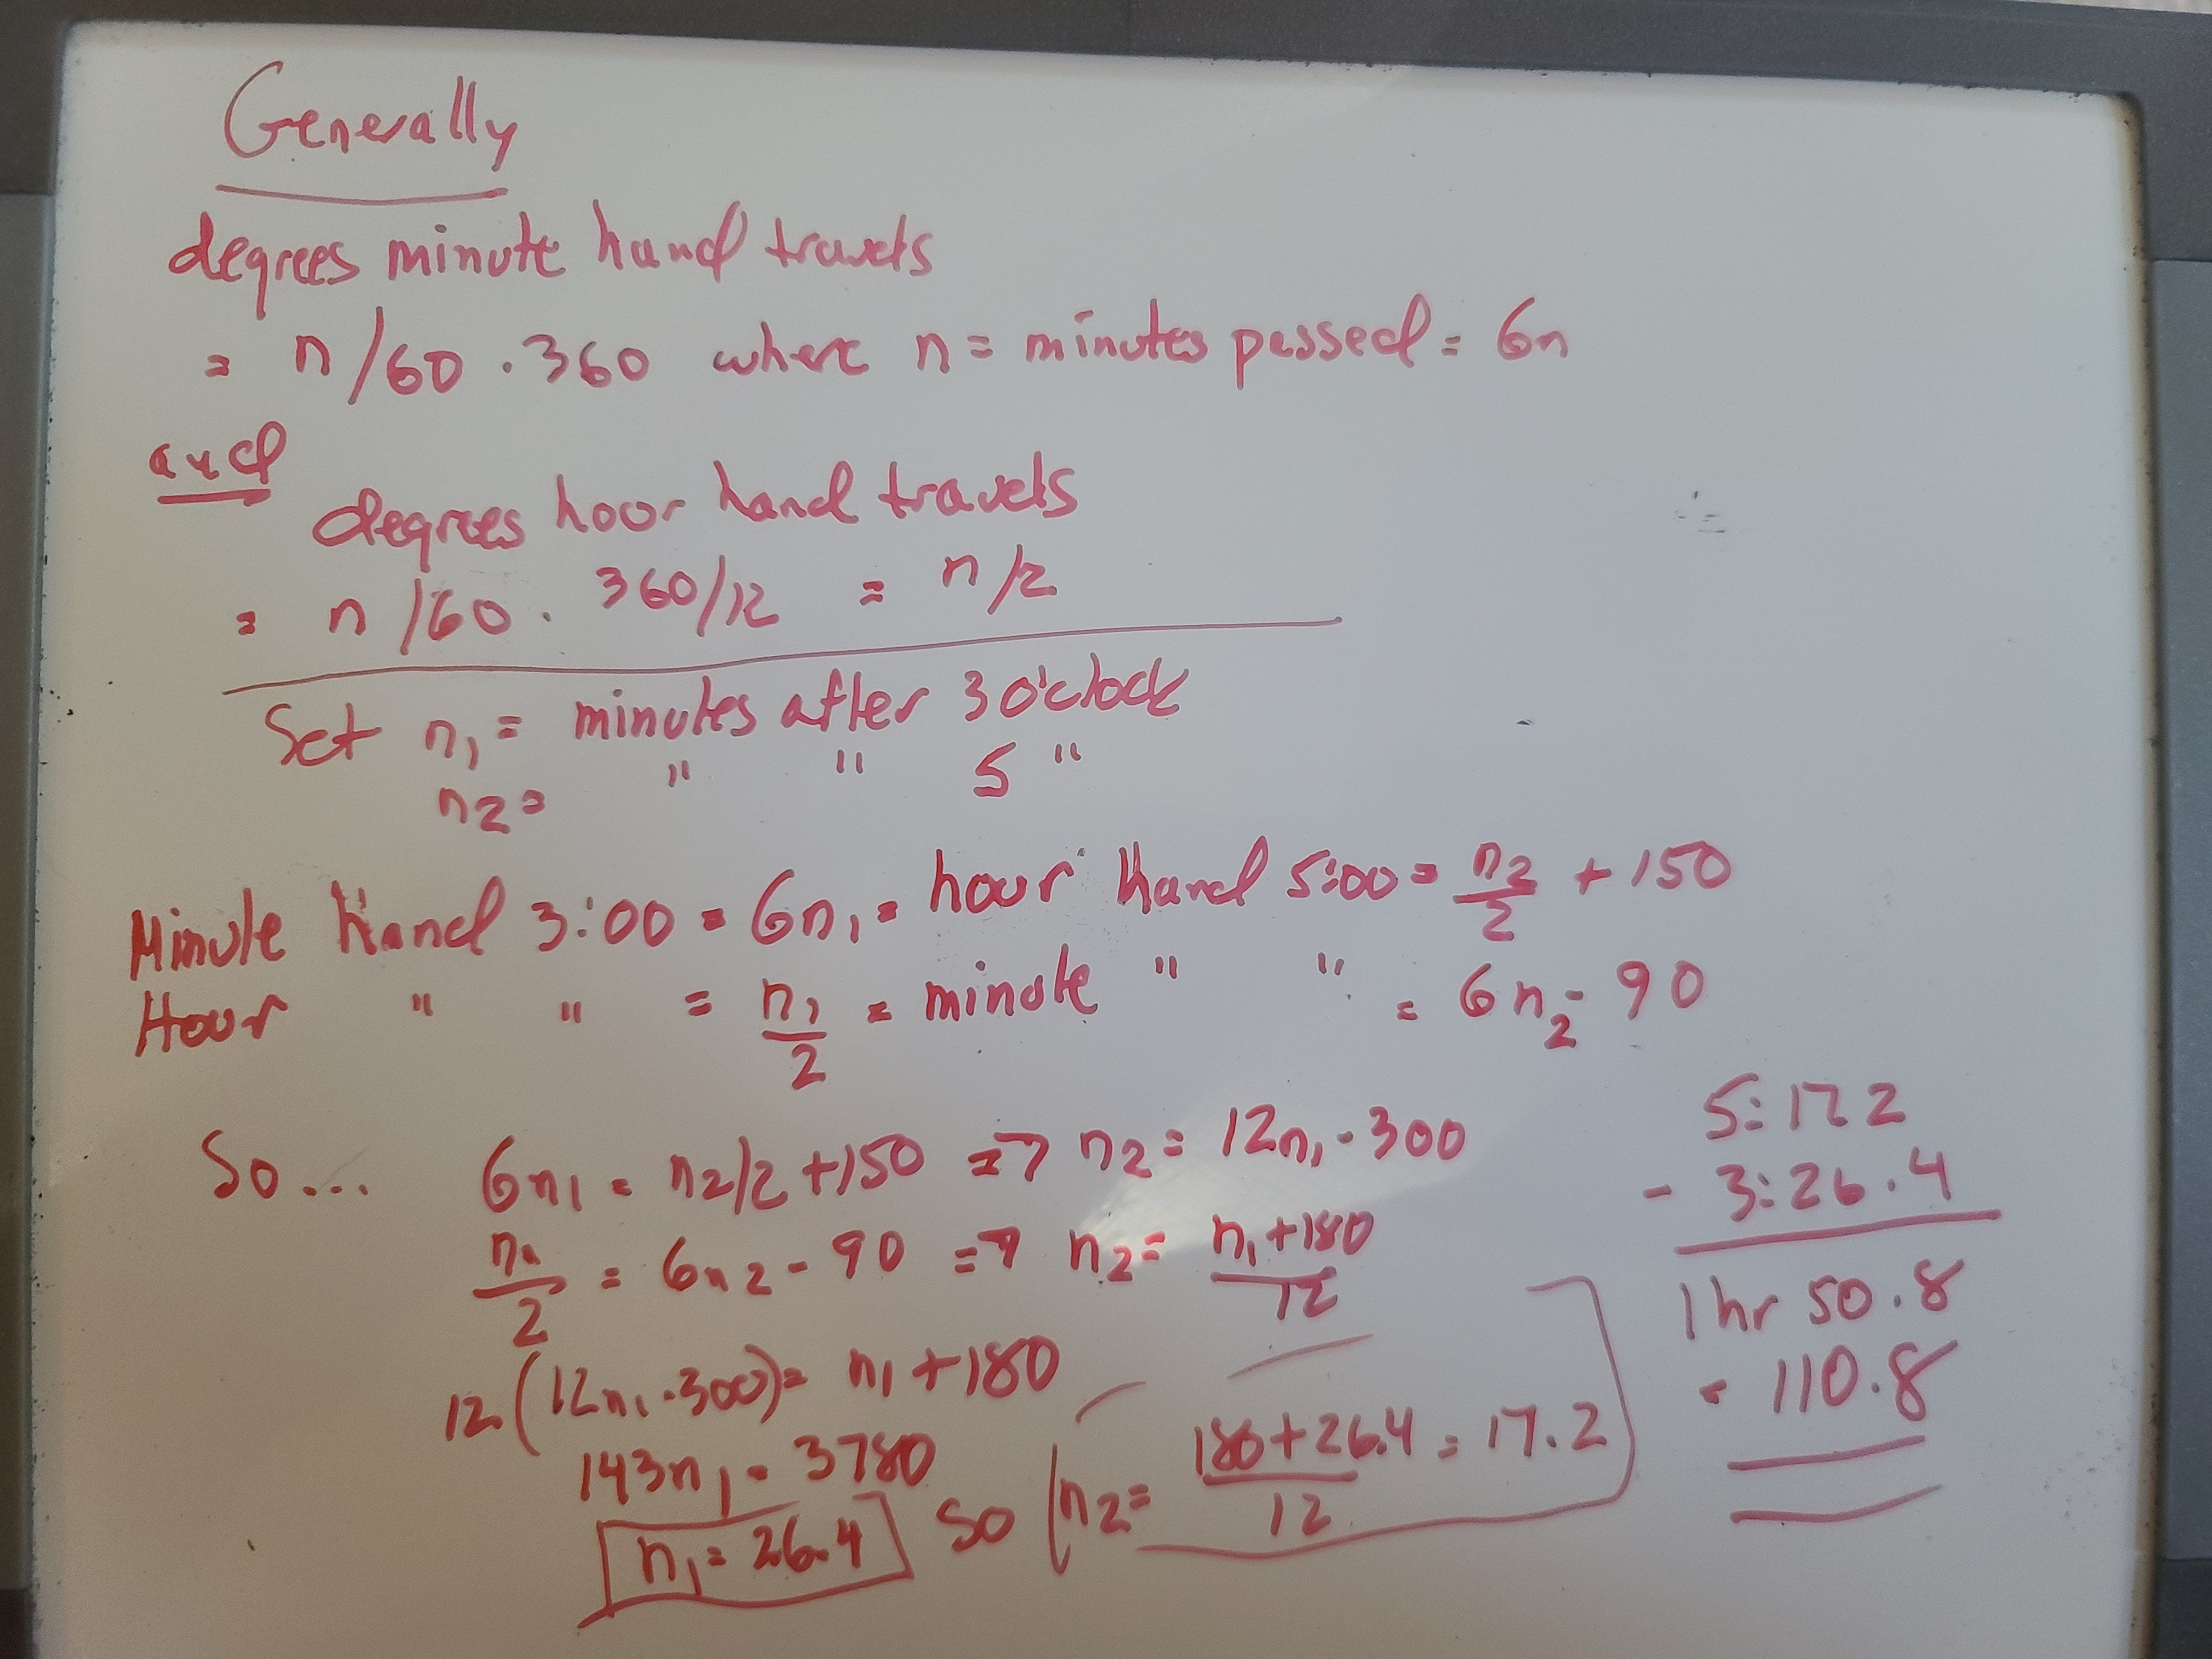 Generally
degrees minute hand travels
= n/60 · 360 where n = minutes passed = 6n
and
degrees hour hand travels
= n/60 · 360/12 = n/2
Set n₁ = minutes after 3 o'clock
n₂ = " " 5 "
Minute hand 3:00 = 6n₁ = hour hand 5:00 = n₂/2 + 150
Hour " " = n₁/2 = minute " " = 6n₂ - 90
So... 6n₁ = n₂/2 + 150 => n₂ = 12n₁ - 300
n₁/2 = 6n₂ - 90 => n₂ = n₁+180/12
12(12n₁-300) = n₁ + 180
143n₁ = 3780
n₁ = 26.4 so n₂ = 180+26.4/12 = 17.2
5:17.2
- 3:26.4
1 hr 50.8
= 110.8